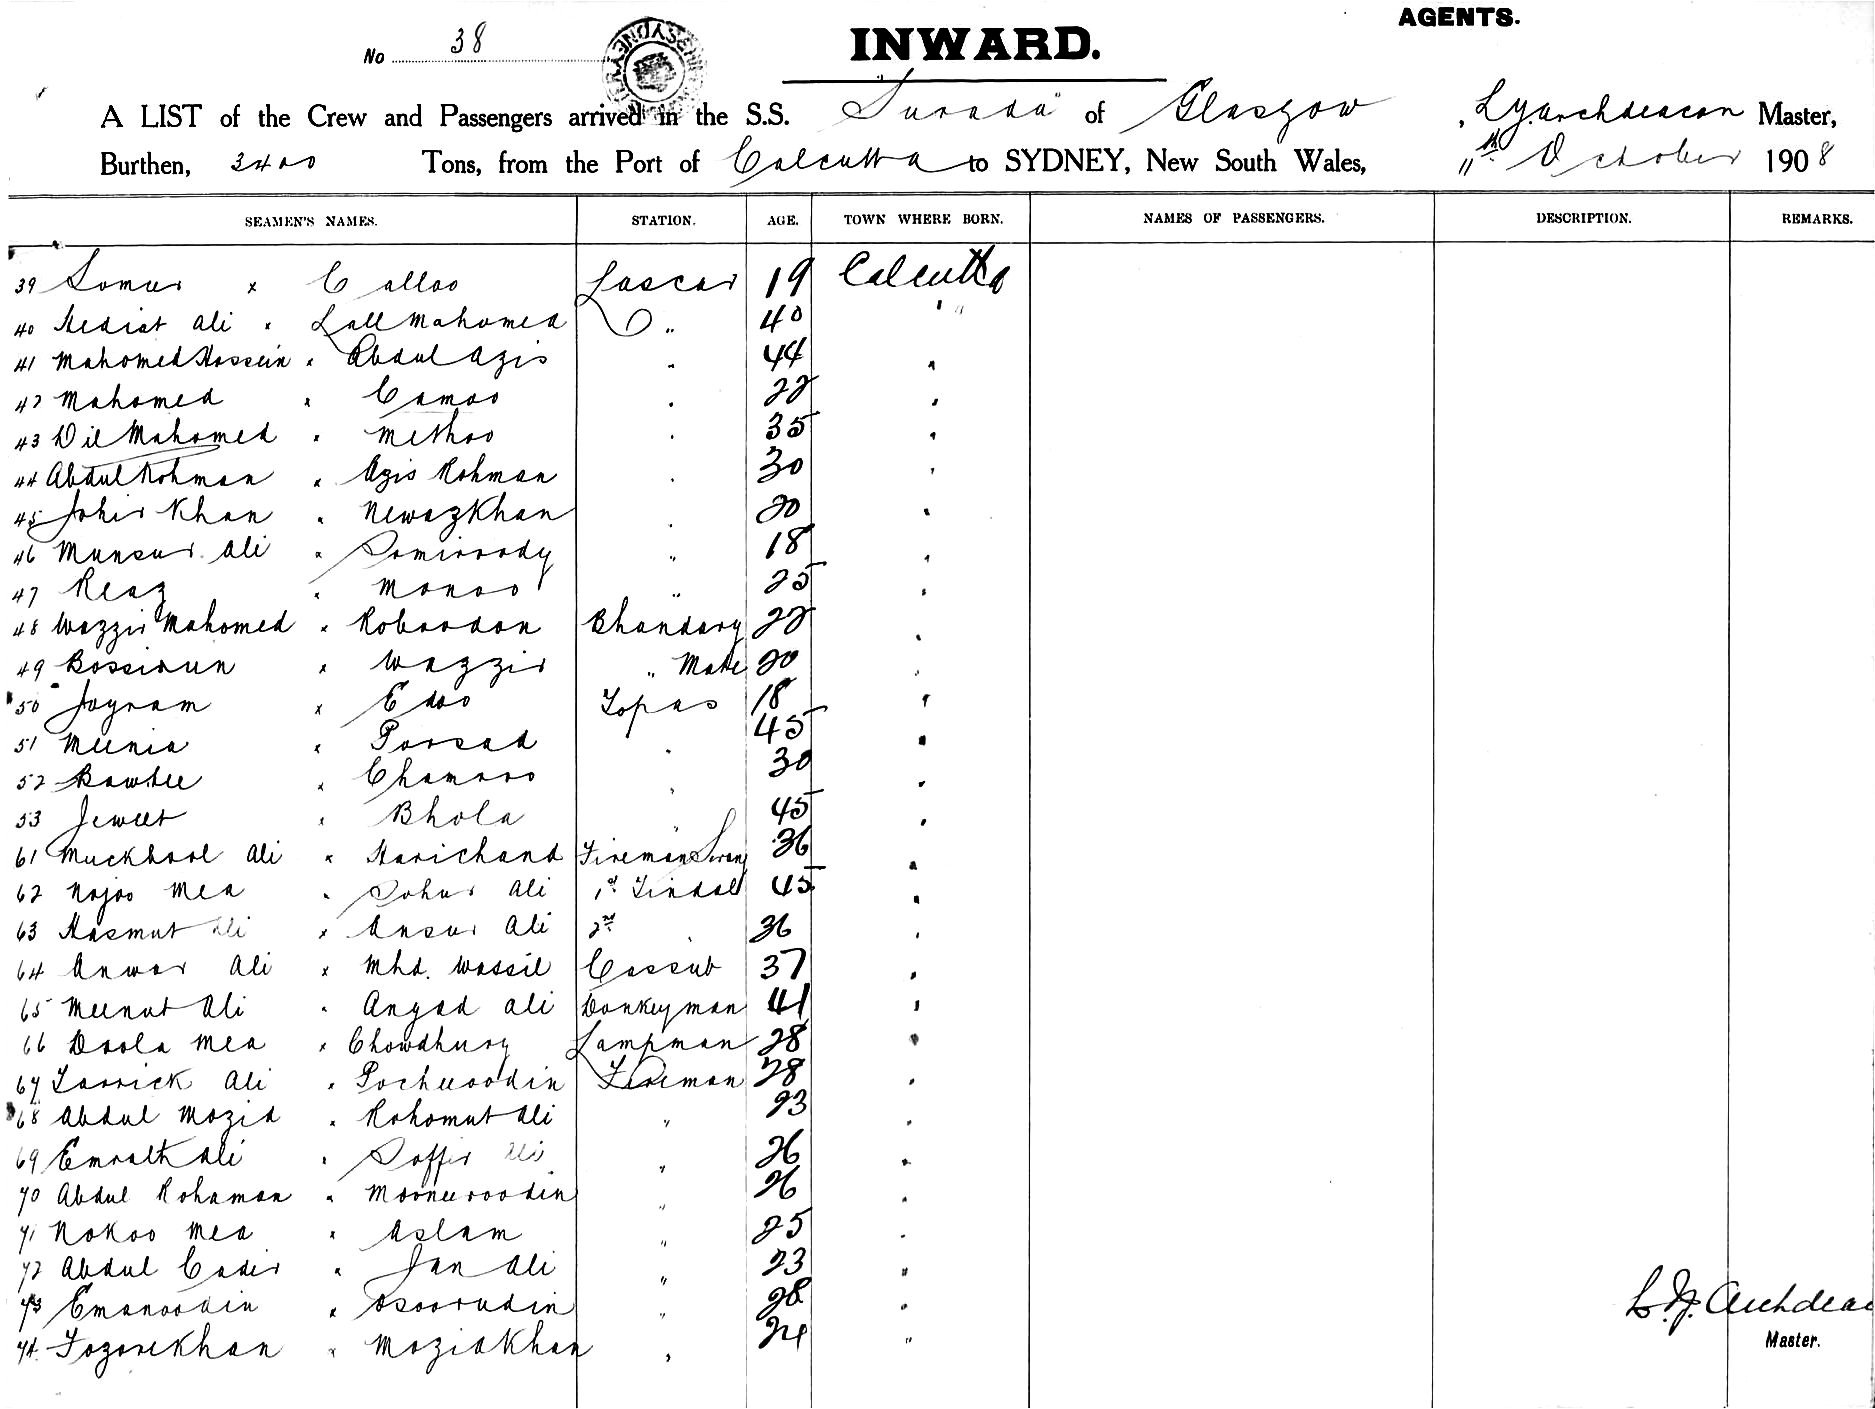 AGENTS.
No 38
INWARD.
A LIST of the Crew and Passengers arrived in the S.S. "Surada" of Glasgow, L. Y. Archdeacon Master,
Burthen, 3400 Tons, from the Port of Calcutta to SYDNEY, New South Wales, 11th October 1908
SEAMEN'S NAMES. STATION. AGE. TOWN WHERE BORN. NAMES OF PASSENGERS. DESCRIPTION. REMARKS.
39 Somur x Calloo Lascar 19 Calcutta
40 Hediat Ali " Lall Mahomed " 40 "
41 Mahomed Hossein " Abdul Azis " 44 "
42 Mahomed " Camoo " 22 "
43 Dil Mahomed " Methoo " 35 "
44 Abdul Rohman " Azis Rohman " 30 "
45 Johir Khan " Newaz Khan " 20 "
46 Munsur Ali " Somiroody " 18 "
47 Reaz " Monoo " 25 "
48 Wazzir Mahomed " Roboodon Bhandary 22 "
49 Bossirun " Wazzir " Mate 20 "
50 Joyram x Edoo Topas 18 "
51 Meenia " Porsad " 45 "
52 Bawtee " Chamaroo " 30 "
53 Jeweet " Bhola " 45 "
61 Muckbool Ali " Harichand Fireman Serang 36 "
62 Nojoo Mea " Sohur Ali 1st Tindal 45 "
63 Hasmut Ali x Ansur Ali 2nd " 36 "
64 Anwar Ali x Mhd. Wassil Cassub 37 "
65 Meenut Ali " Angad Ali Donkeyman 41 "
66 Doola Mea x Chowdhury Lampman 28 "
67 Torrick Ali " Pocheeroodin Fireman 28 "
68 Abdul Mozid " Rohomut Ali " 23 "
69 Emrath Ali " Soffir Ali " 26 "
70 Abdul Rohaman " Mooneeroodin " 26 "
71 Nokoo Mea " Aslam " 25 "
72 Abdul Cadir " Jan Ali " 23 "
73 Emanoodin " Osoorudin " 28 "
74 Fozorekhan " Mozidkhan " 24 "
L. Y. Archdeac
Master.